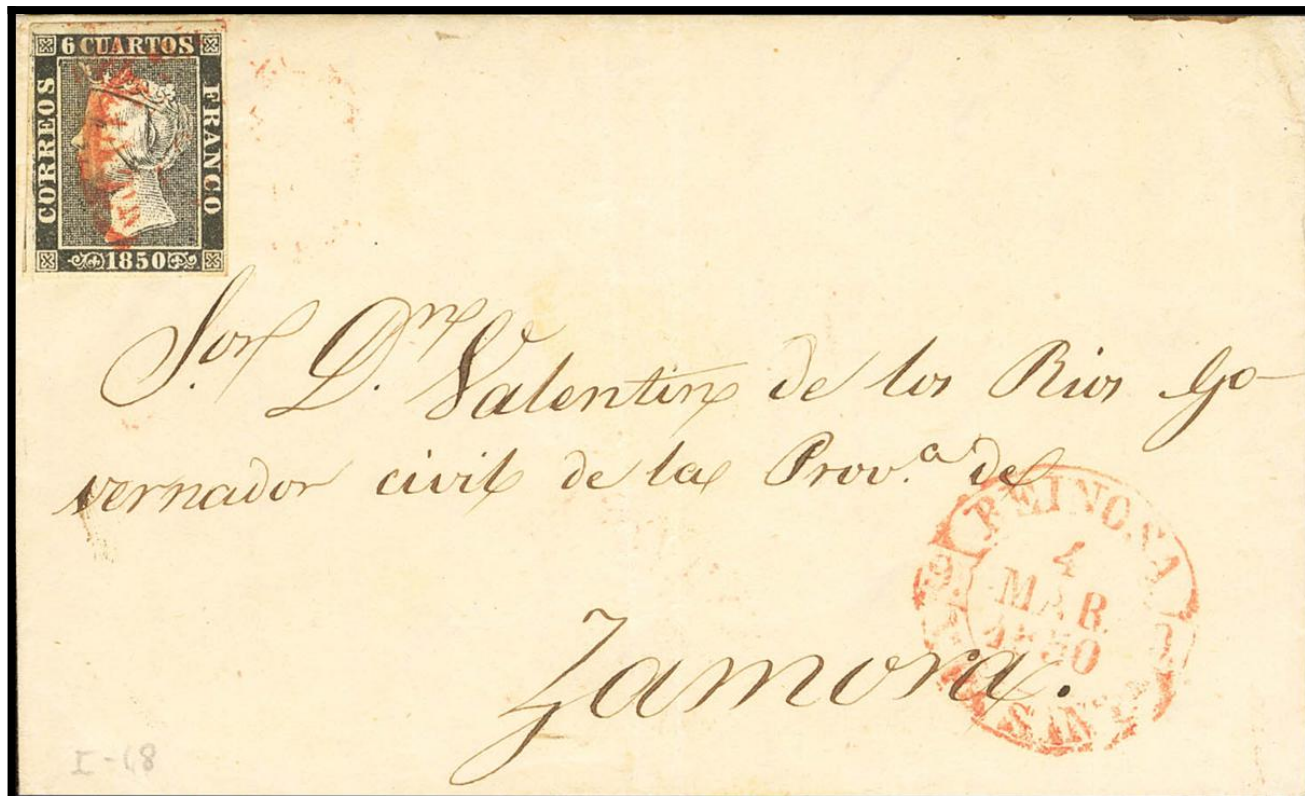 6 CUARTOS
CORREOS
FRANCO
1850
Sor. Dn. Valentin de los Rios Go-
vernador civil de la Prov.a de
Zamora.
REINOSA
4
MAR.
1850
I-18